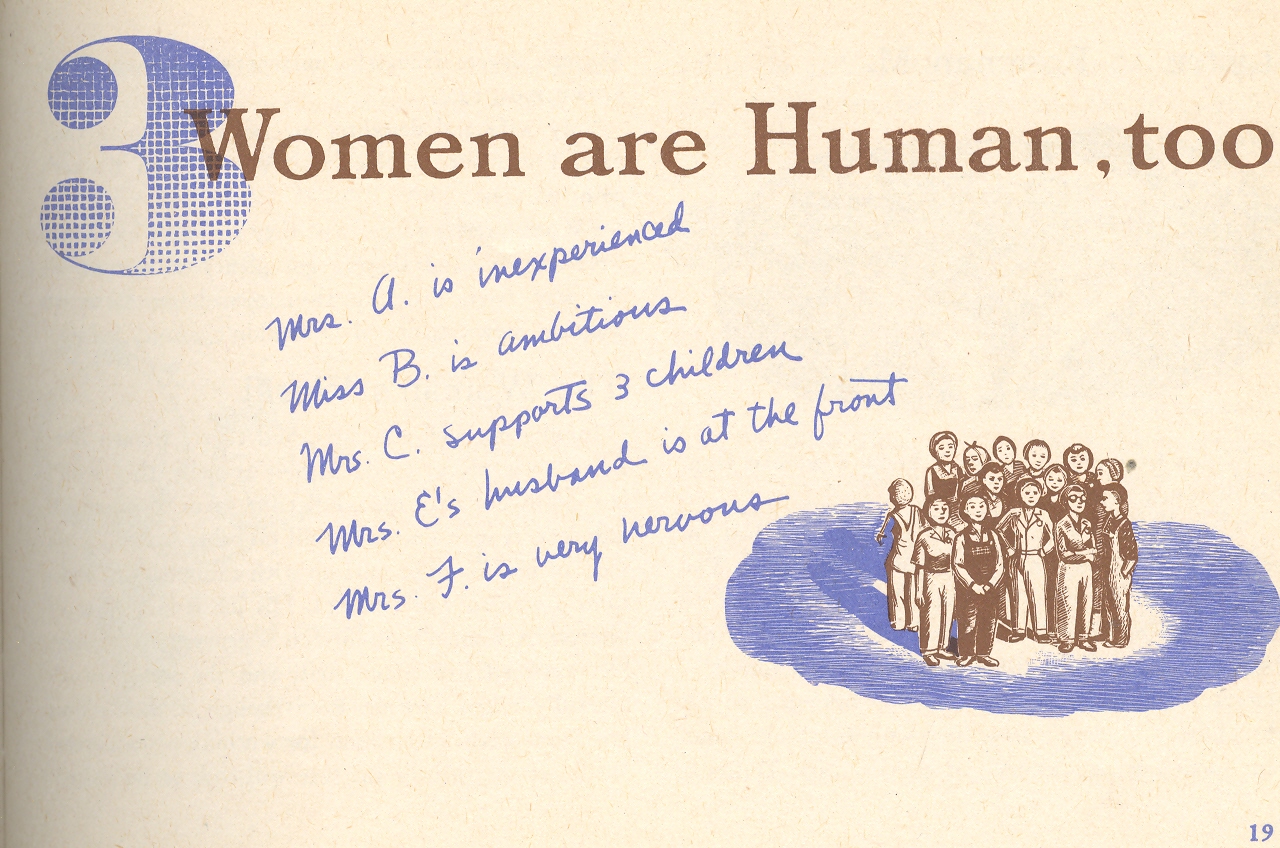 3
Women are Human, too
Mrs. A. is inexperienced
Miss B. is ambitious
Mrs. C. supports 3 children
Mrs. E's husband is at the front
Mrs. F. is very nervous
19